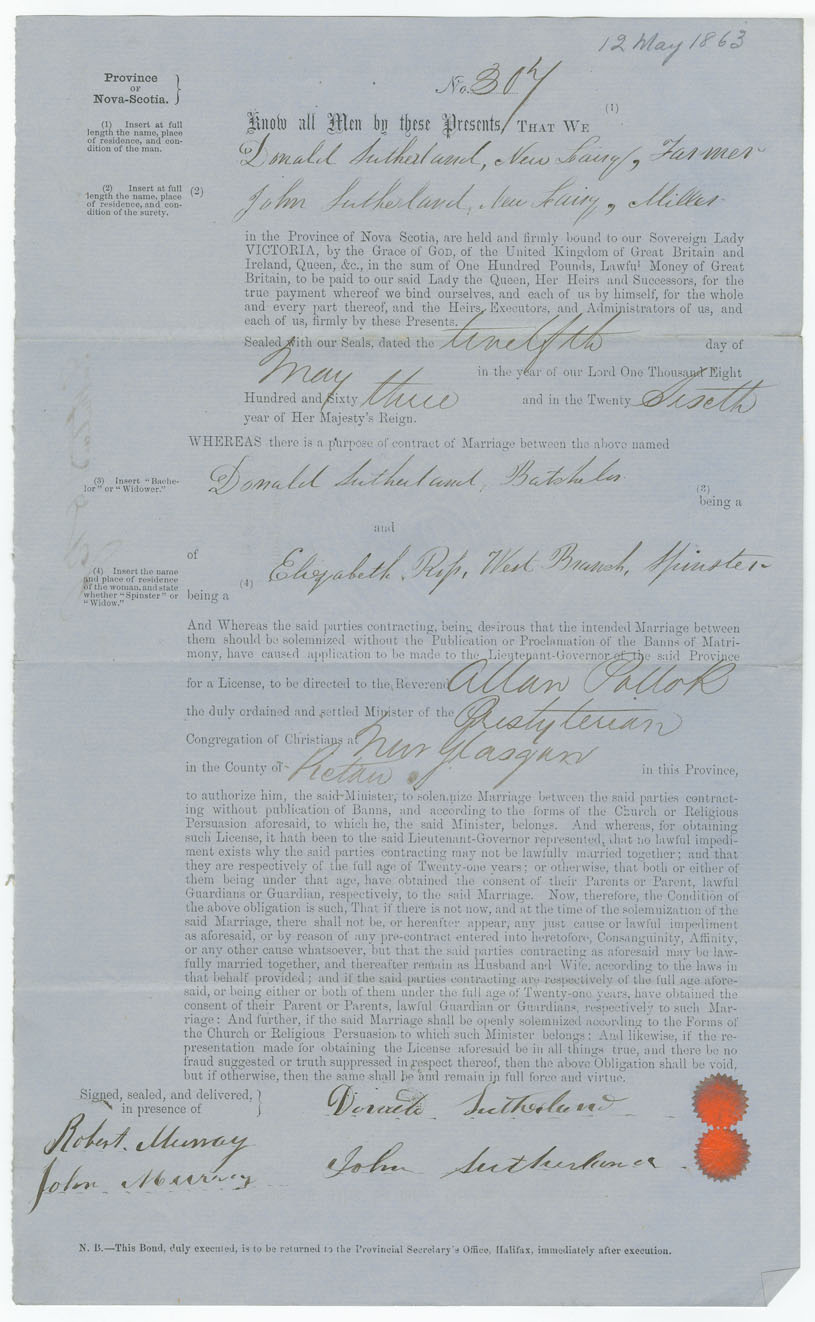 12 May 1863
Province
OF
Nova-Scotia.
No. 307
(1) Insert at full
length the name, place
of residence, and con-
dition of the man.
Know all Men by these Presents, THAT WE (1)
Donald Sutherland, New Lairg, Farmer
(2) Insert at full
length the name, place
of residence, and con-
dition of the surety.
(2) John Sutherland, New Lairg, Miller
in the Province of Nova Scotia, are held and firmly bound to our Sovereign Lady
VICTORIA, by the Grace of God, of the United Kingdom of Great Britain and
Ireland, Queen, &c., in the sum of One Hundred Pounds, Lawful Money of Great
Britain, to be paid to our said Lady the Queen, Her Heirs and Successors, for the
true payment whereof we bind ourselves, and each of us by himself, for the whole
and every part thereof, and the Heirs, Executors, and Administrators of us, and
each of us, firmly by these Presents.
Sealed with our Seals, dated the twelfth day of
May in the year of our Lord One Thousand Eight
Hundred and Sixty three and in the Twenty Sixeth
year of Her Majesty's Reign.
WHEREAS there is a purpose of contract of Marriage between the above named
(3) Insert "Bache-
lor" or "Widower."
Donald Sutherland, Batshelor
(3)
being a
and
of
(4) Insert the name
and place of residence
of the woman, and state
whether "Spinster" or
"Widow."
(4) Elizabeth Ross, West Branch, Spinster
being a
And Whereas the said parties contracting, being desirous that the intended Marriage between
them should be solemnized without the Publication or Proclamation of the Banns of Matri-
mony, have caused application to be made to the Lieutenant-Governor of the said Province
for a License, to be directed to the Reverend Allan Pollok
the duly ordained and settled Minister of the Presbyterian
Congregation of Christians at New Glasgow
in the County of Pictou in this Province,
to authorize him, the said Minister, to solemnize Marriage between the said parties contract-
ing without publication of Banns, and according to the forms of the Church or Religious
Persuasion aforesaid, to which he, the said Minister, belongs. And whereas, for obtaining
such License, it hath been to the said Lieutenant-Governor represented, that no lawful impedi-
ment exists why the said parties contracting may not be lawfully married together; and that
they are respectively of the full age of Twenty-one years; or otherwise, that both or either of
them being under that age, have obtained the consent of their Parents or Parent, lawful
Guardians or Guardian, respectively, to the said Marriage. Now, therefore, the Condition of
the above obligation is such, That if there is not now, and at the time of the solemnization of the
said Marriage, there shall not be, or hereafter appear, any just cause or lawful impediment
as aforesaid, or by reason of any pre-contract entered into heretofore, Consanguinity, Affinity,
or any other cause whatsoever, but that the said parties contracting as aforesaid may be law-
fully married together, and thereafter remain as Husband and Wife, according to the laws in
that behalf provided; and if the said parties contracting are respectively of the full age afore-
said, or being either or both of them under the full age of Twenty-one years, have obtained the
consent of their Parent or Parents, lawful Guardian or Guardians, respectively to such Mar-
riage: And further, if the said Marriage shall be openly solemnized according to the Forms of
the Church or Religious Persuasion to which such Minister belongs: And likewise, if the re-
presentation made for obtaining the License aforesaid be in all things true, and there be no
fraud suggested or truth suppressed in respect thereof, then the above Obligation shall be void,
but if otherwise, then the same shall be and remain in full force and virtue.
Signed, sealed, and delivered,
in presence of
Donald Sutherland
Robert Murray
John Sutherland
John Murray
N. B.—This Bond, duly executed, is to be returned to the Provincial Secretary's Office, Halifax, immediately after execution.